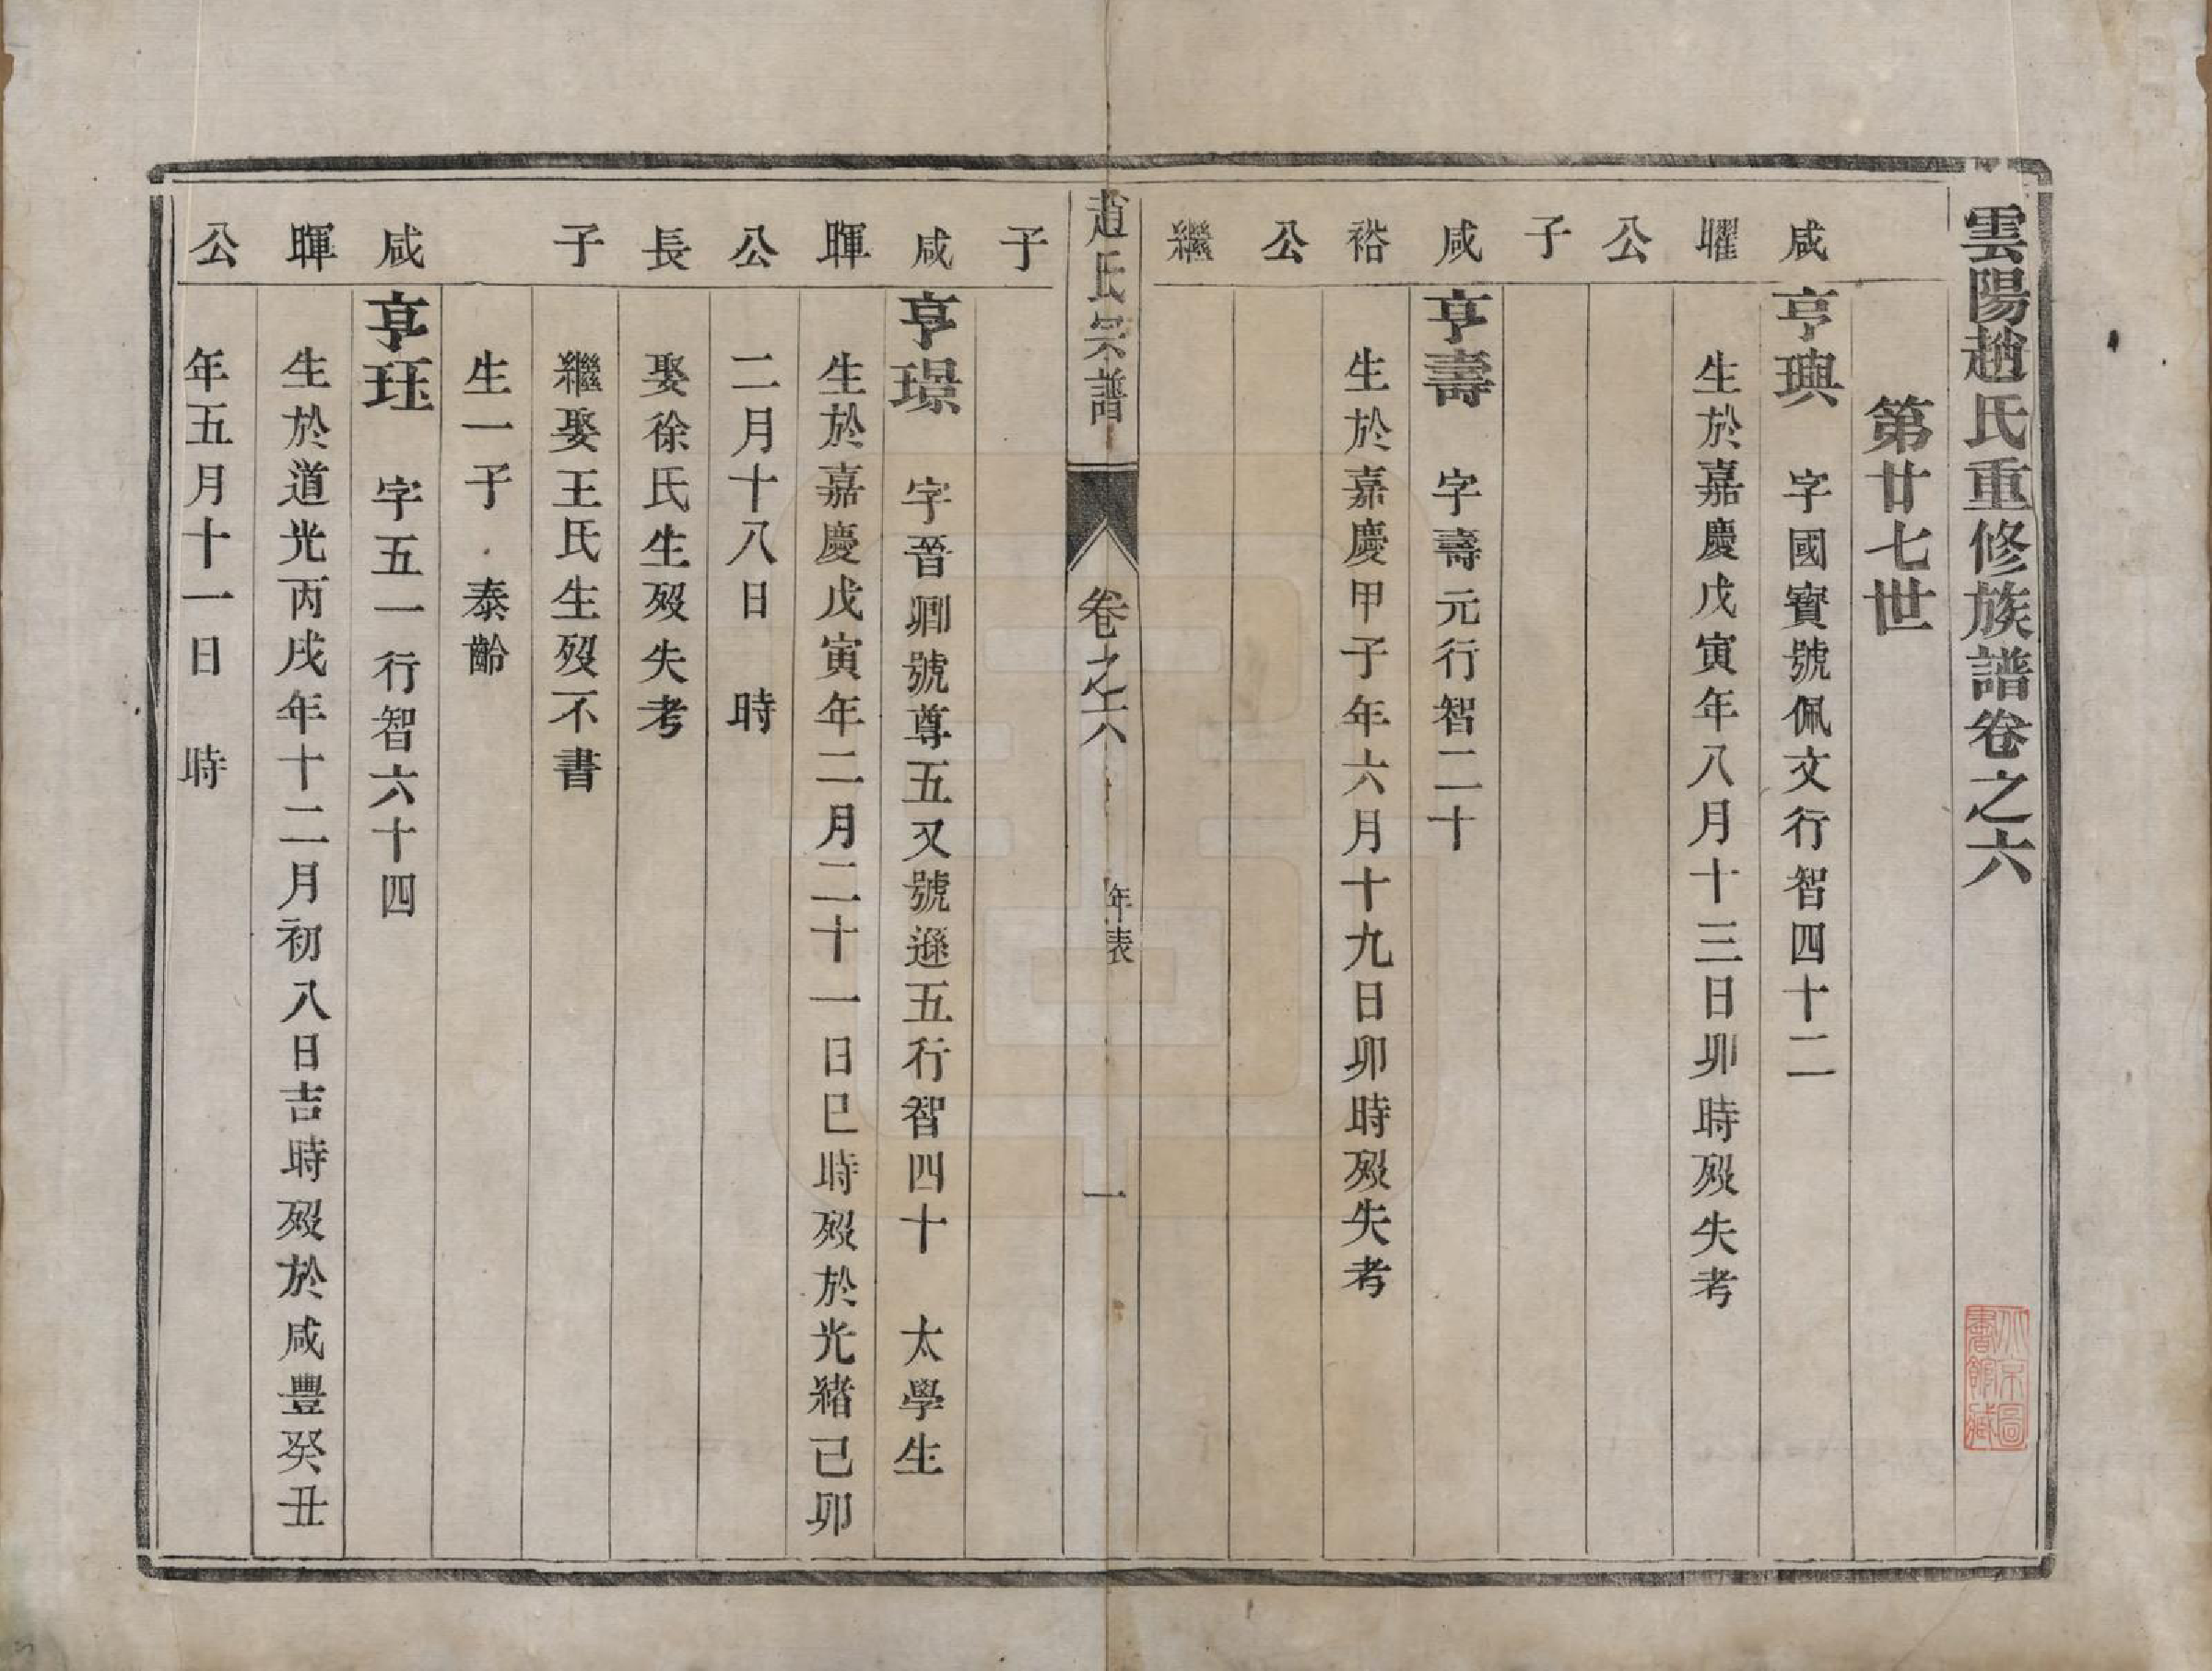 雲陽趙氏重修族譜卷之六
第廿七世
咸 亨璵 字國寶號佩文行智四十二
曜 生於嘉慶戊寅年八月十三日卯時歿失考
公
子
咸 亨壽 字壽元行智二十
裕 生於嘉慶甲子年六月十九日卯時歿失考
公
繼
趙氏宗譜 卷之六 年表 一
子
咸 亨璟 字晉卿號尊五又號遜五行智四十 太學生
暉 生於嘉慶戊寅年二月二十一日巳時歿於光緒己卯
公 二月十八日 時
長 娶徐氏生歿失考
子 繼娶王氏生歿不書
生一子 泰齡
咸 亨珏 字五一行智六十四
暉 生於道光丙戌年十二月初八日吉時歿於咸豐癸丑
公 年五月十一日 時
北京圖
書館藏